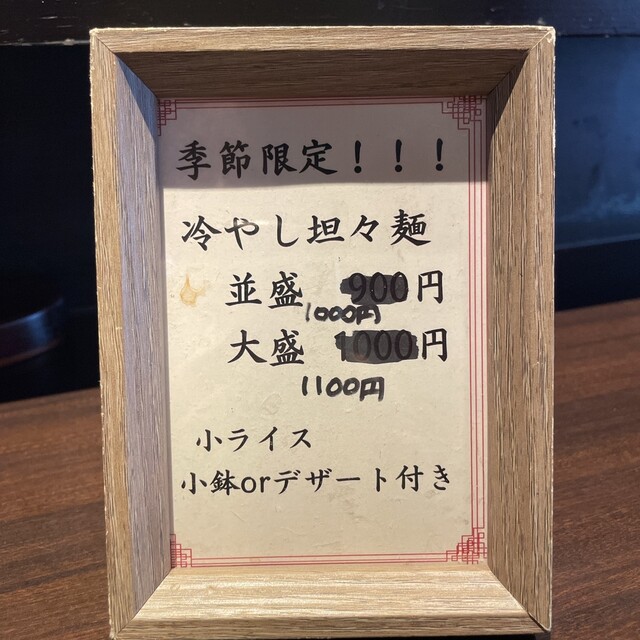 季節限定！！！
冷やし坦々麺
並盛 900円
1000円
大盛 1000円
1100円
小ライス
小鉢orデザート付き